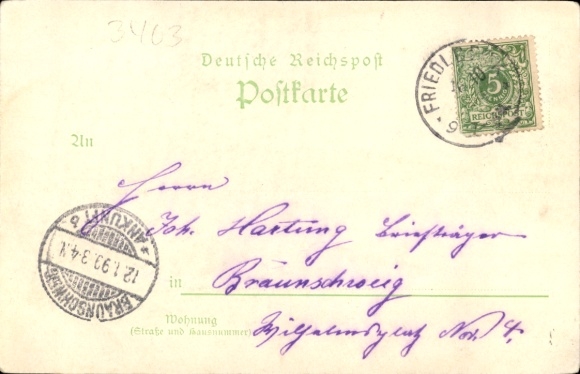 3403
Deutsche Reichspost
Postkarte
An
Herrn
Joh. Hartung Briefträger
in Braunschweig
Wohnung
(Straße und Hausnummer)
Wilhelmsplatz Nro. 4.
FRIEDL
5
REICHSPOST
BRAUNSCHWEIG
12.1.99.3-4.N.
* ANKUNFT b *